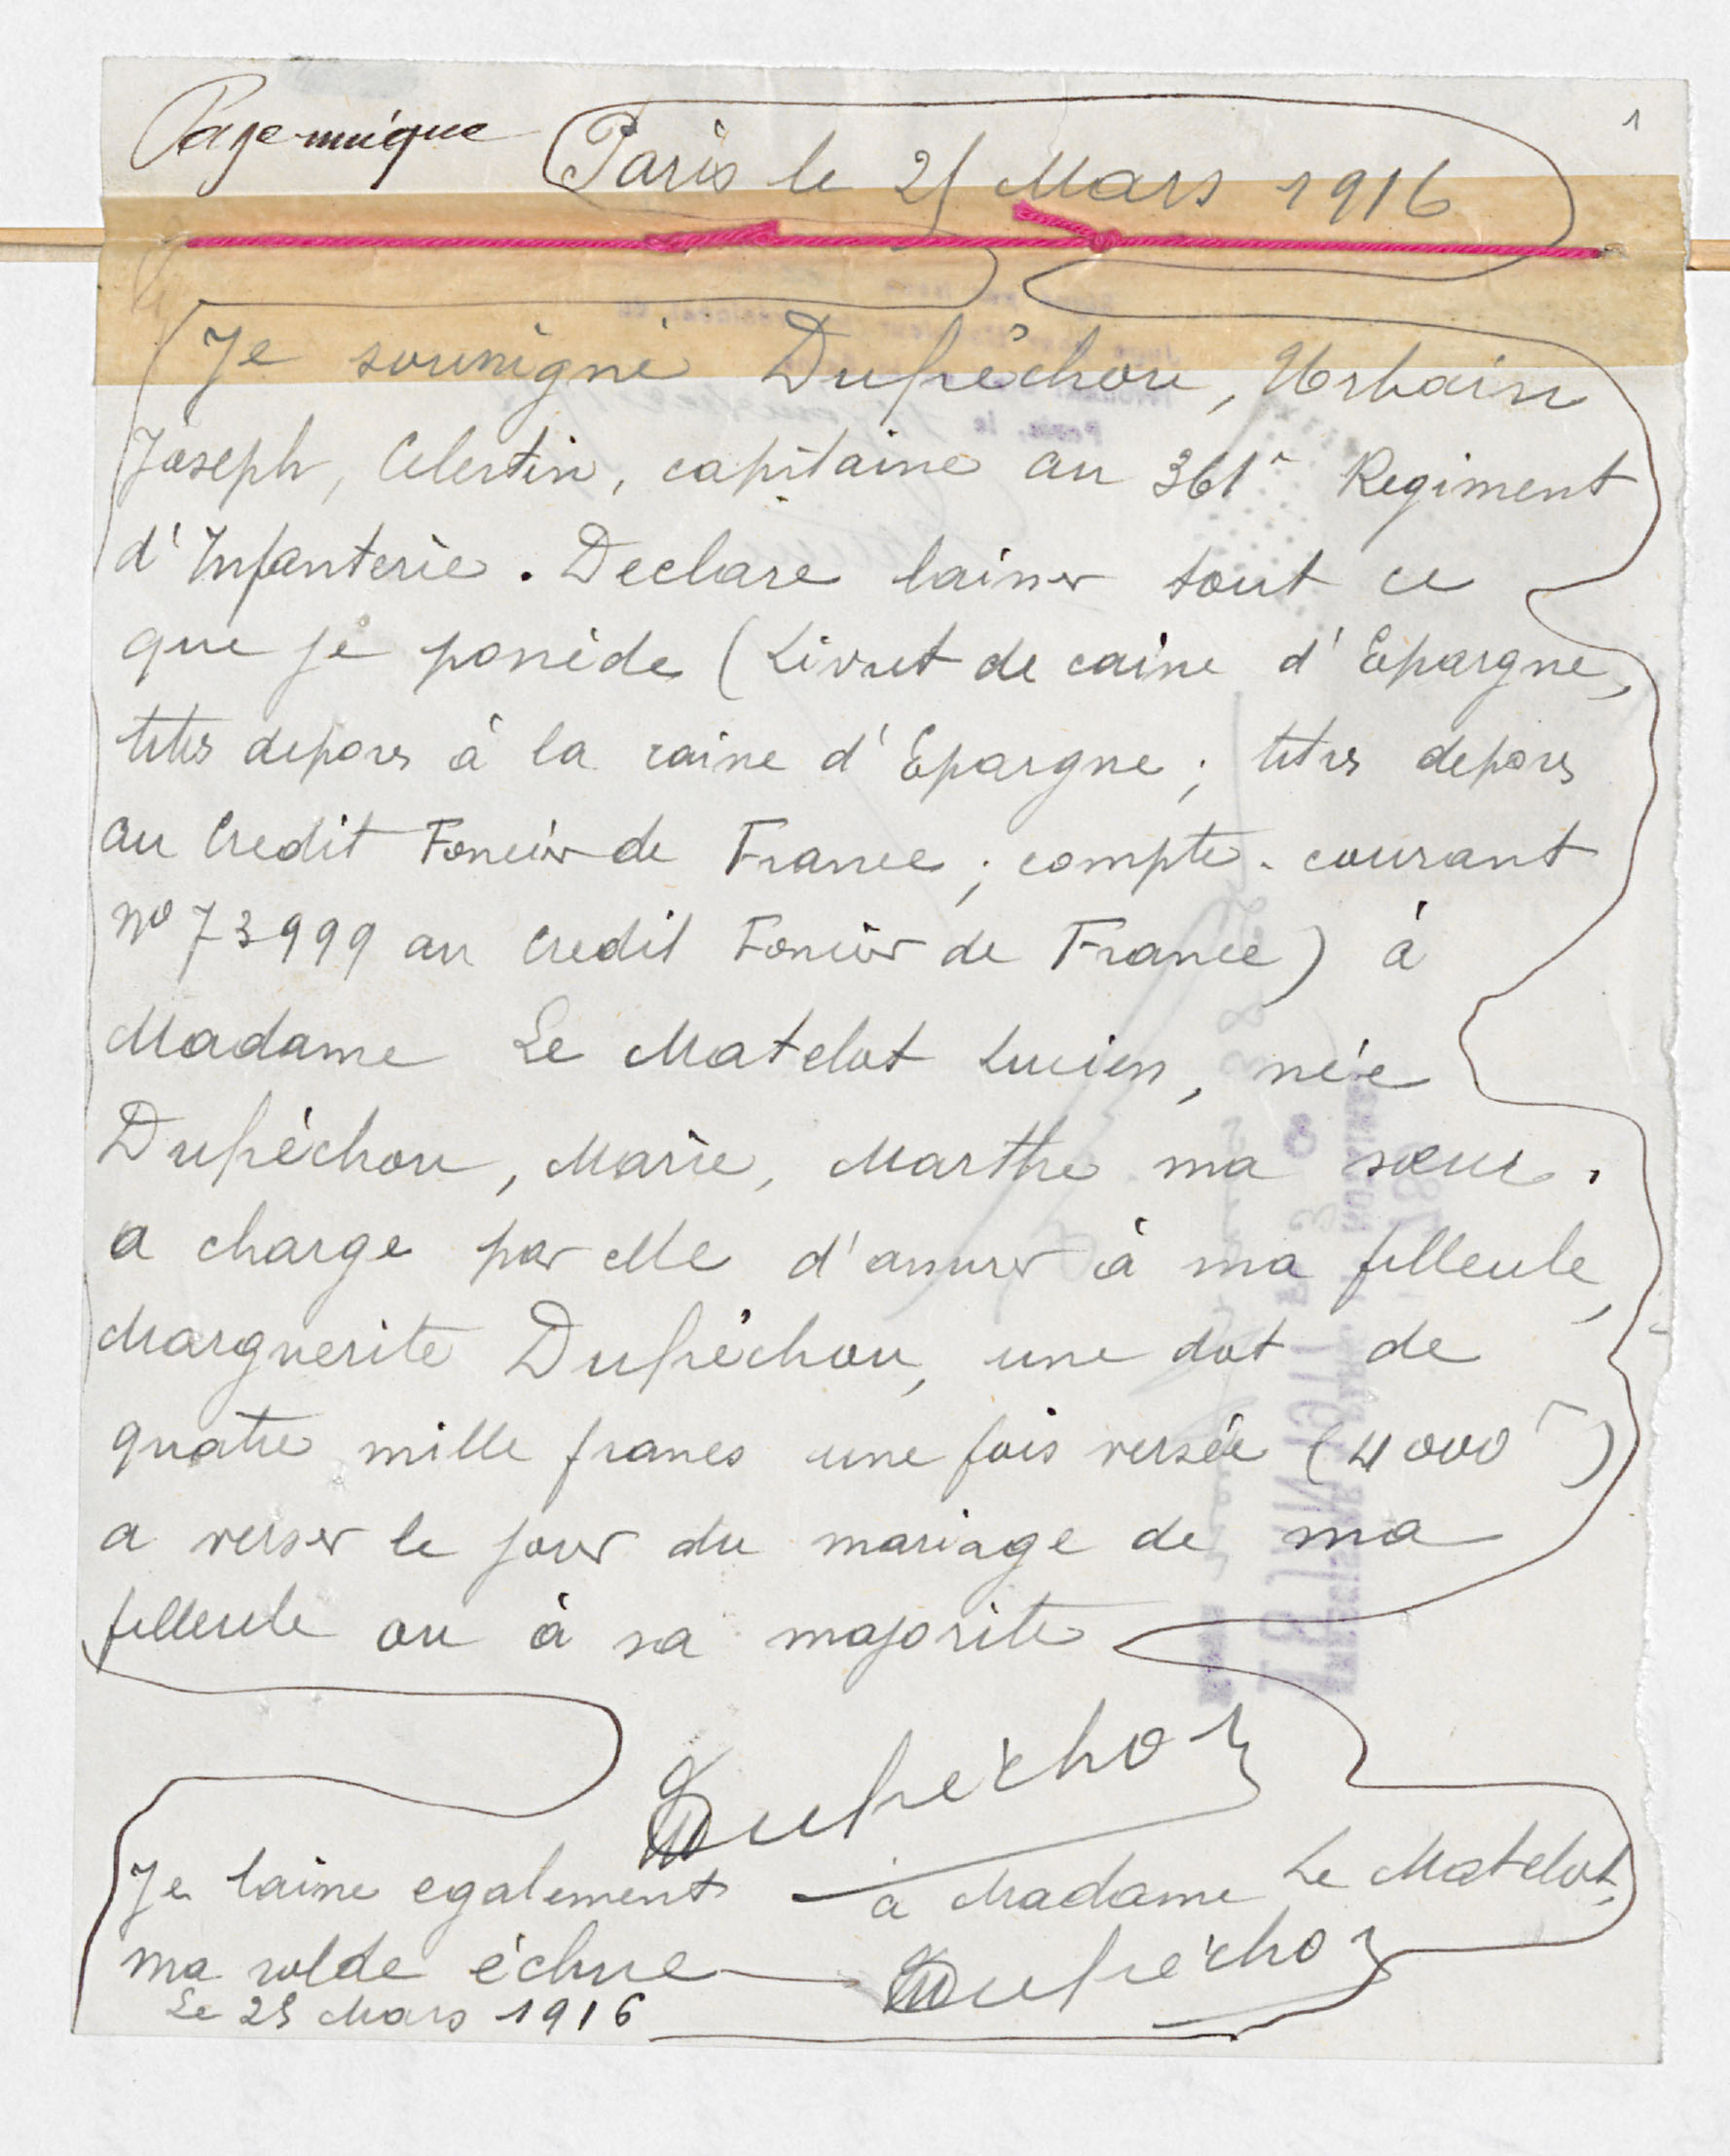 Page unique
1
Paris le 25 Mars 1916
Je soussigné Dupéchou, Urbain
Joseph, Celestin, capitaine au 361e Regiment
d'Infanterie. Declare laisser tout ce
que je possède (Livret de caisse d'Epargne,
titres deposes à la caisse d'Epargne; titres deposes
au Credit Foncier de France; compte-courant
No 73999 au Credit Foncier de France) à
Madame Le Matelot Lucien, née
Dupéchou, Marie, Marthe ma sœur.
a charge par elle d'assurer à ma filleule,
Marguerite Dupéchou, une dot de
quatre mille francs une fois versée (4000f)
a verser le jour du mariage de ma
filleule ou à sa majorite
Dupéchou
Je laisse egalement à Madame Le Matelot,
ma solde échue Dupéchou
Le 25 Mars 1916